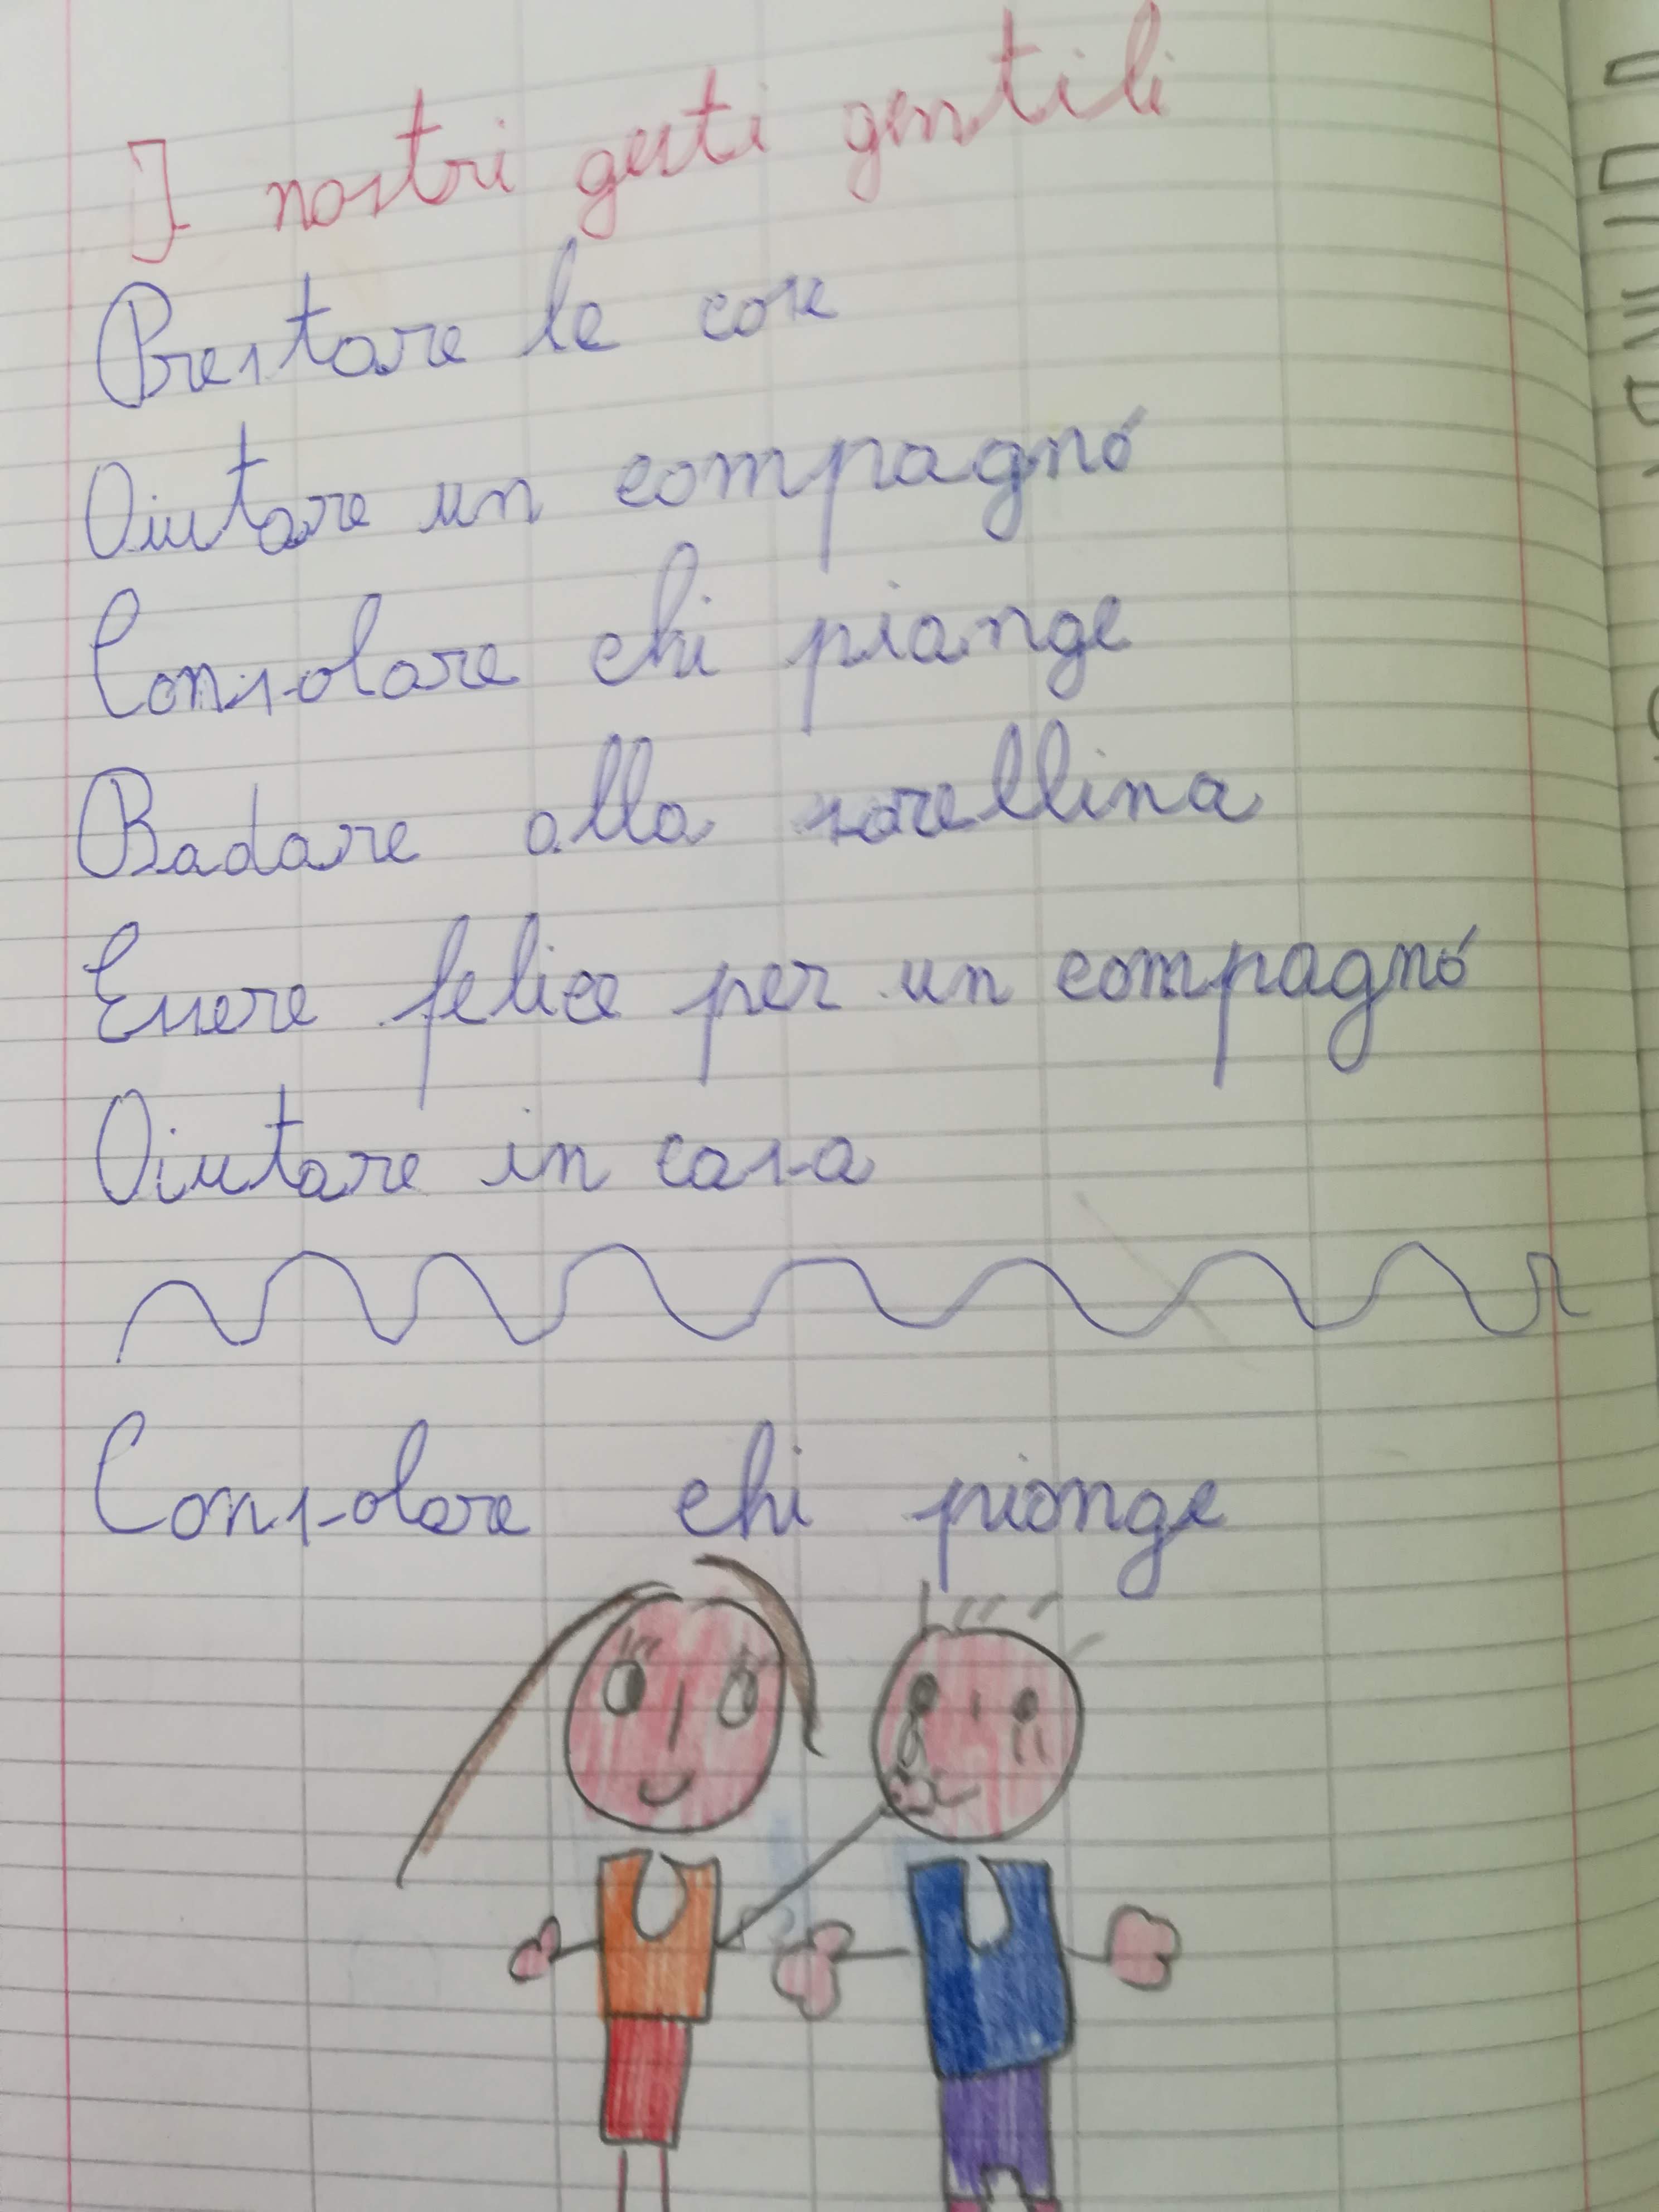 I nostri gesti gentili
Prestare le cose
Aiutare un compagno
Consolare chi piange
Badare alla sorellina
Essere felice per un compagno
Aiutare in casa
Consolare chi piange